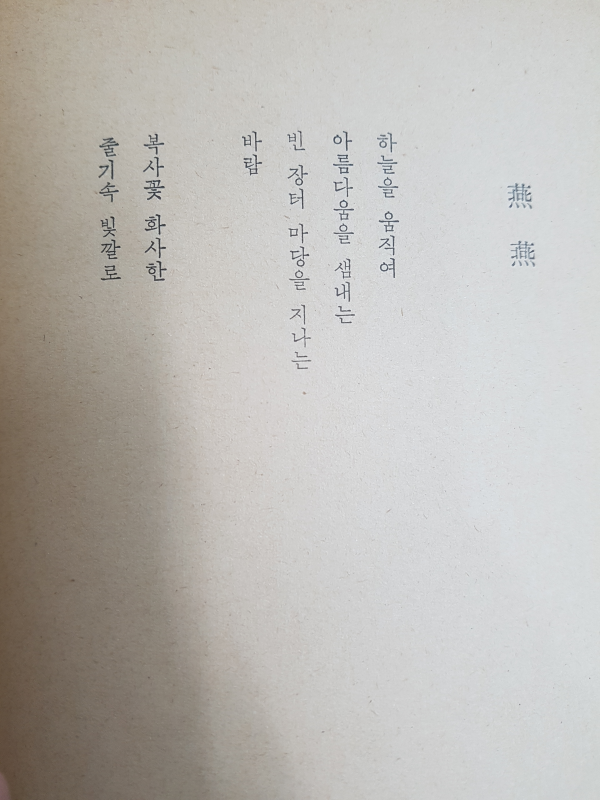 燕燕
하늘을 움직여
아름다움을 샘내는
빈 장터 마당을 지나는
바람
복사꽃 화사한
줄기속 빛깔로